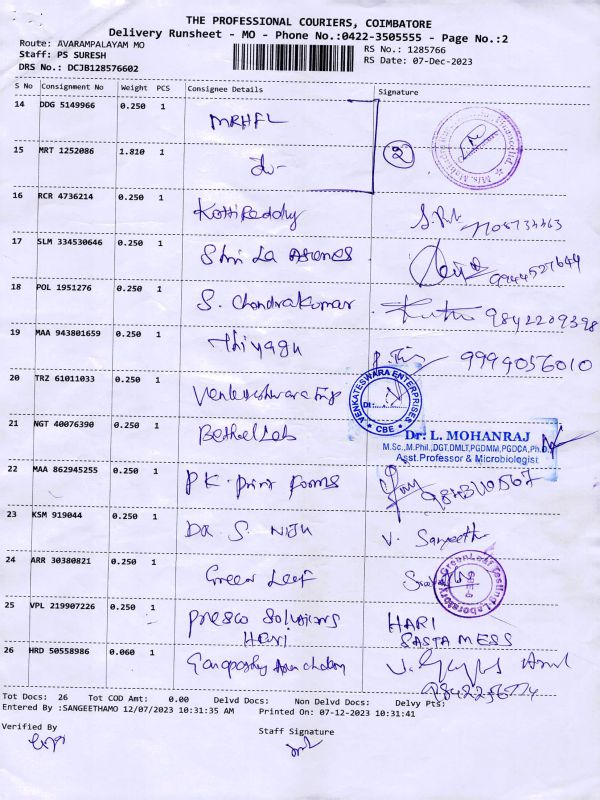 THE PROFESSIONAL COURIERS, COIMBATORE
Delivery Runsheet - MO - Phone No.:0422-3505555 - Page No.:2
Route: AVARAMPALAYAM MO
RS No.: 1285766
Staff: PS SURESH
RS Date: 07-Dec-2023
DRS No.: DCJB128576602
S No Consignment No Weight PCS Consignee Details Signature
14 DDG 5149966 0.250 1 MRHFL
15 MRT 1252086 1.810 1 do- 2
16 RCR 4736214 0.250 1 Kotti Reddy
17 SLM 334530646 0.250 1 9944527644
18 POL 1951276 0.250 1 S. Chandrakumar 9842209398
19 MAA 943801659 0.250 1 Thiyagu 9994056010
20 TRZ 61011033 0.250 1 VENKATESWARA ENTERPRISES CBE
21 NGT 40076390 0.250 1 Bethel Lab
Dr. L. MOHANRAJ
M.Sc.,M.Phil.,DGT,DMLT,PGDMM,PGDCA,Ph.D.,
Asst.Professor & Microbiologist
22 MAA 862945255 0.250 1 P.K. Print Forms
23 KSM 919044 0.250 1 DR. S. NIJU V. Sangeetha
24 ARR 30380821 0.250 1 Green Leef Green Leaf Testing Laboratory
25 VPL 219907226 0.250 1 Presco Solutions HARI
Hari SASTA MESS
26 HRD 50558986 0.060 1
Tot Docs: 26 Tot COD Amt: 0.00 Delvd Docs: Non Delvd Docs: Delvy Pts:
Entered By :SANGEETHAMO 12/07/2023 10:31:35 AM Printed On: 07-12-2023 10:31:41
Verified By Staff Signature